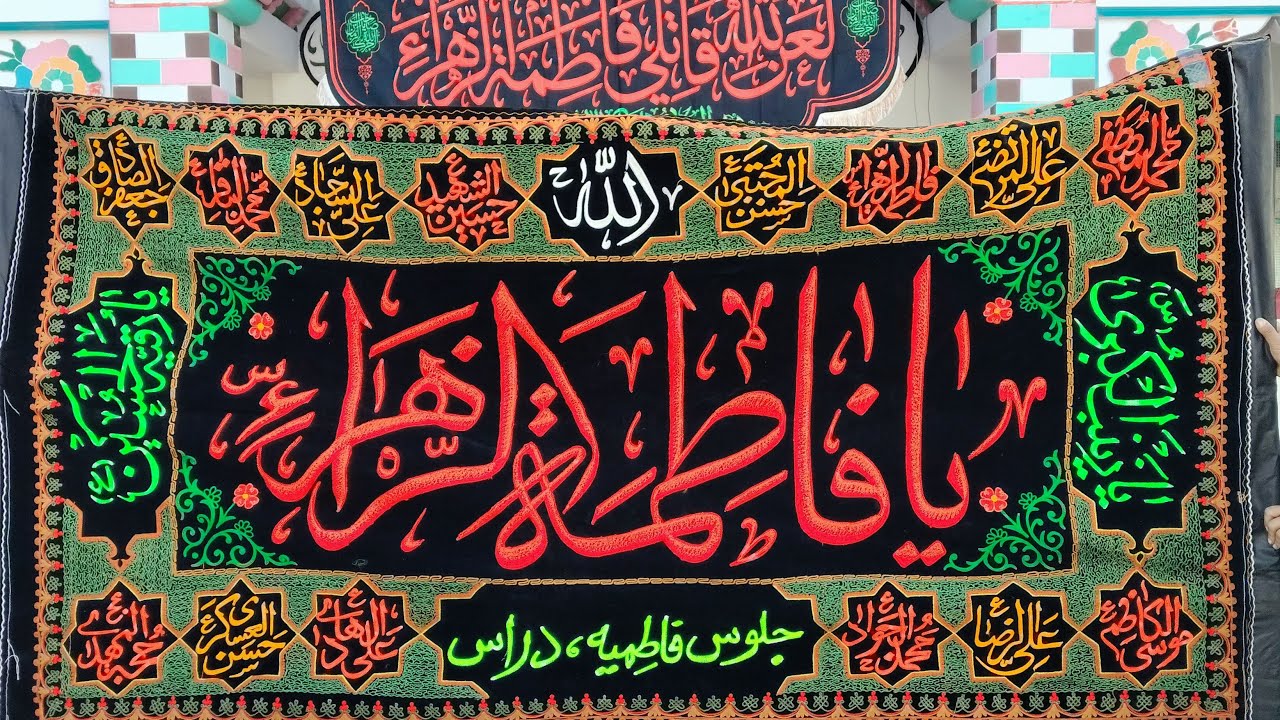 لعن الله قاتلي فاطمة الزهراء
محمد المصطفیٰ
علی المرتضیٰ
فاطمة الزهراء
حسن المجتبیٰ
الله
حسین الشهید
علی السجاد
محمد الباقر
جعفر الصادق
یا زینب الکبریٰ س
یا فاطمة الزهراء س
یا رقیة الحسین
موسی الکاظم
علی الرضا
محمد الجواد
جلوس فاطمیه، دراس
علی الهادی
حسن العسکری
حجة المهدی